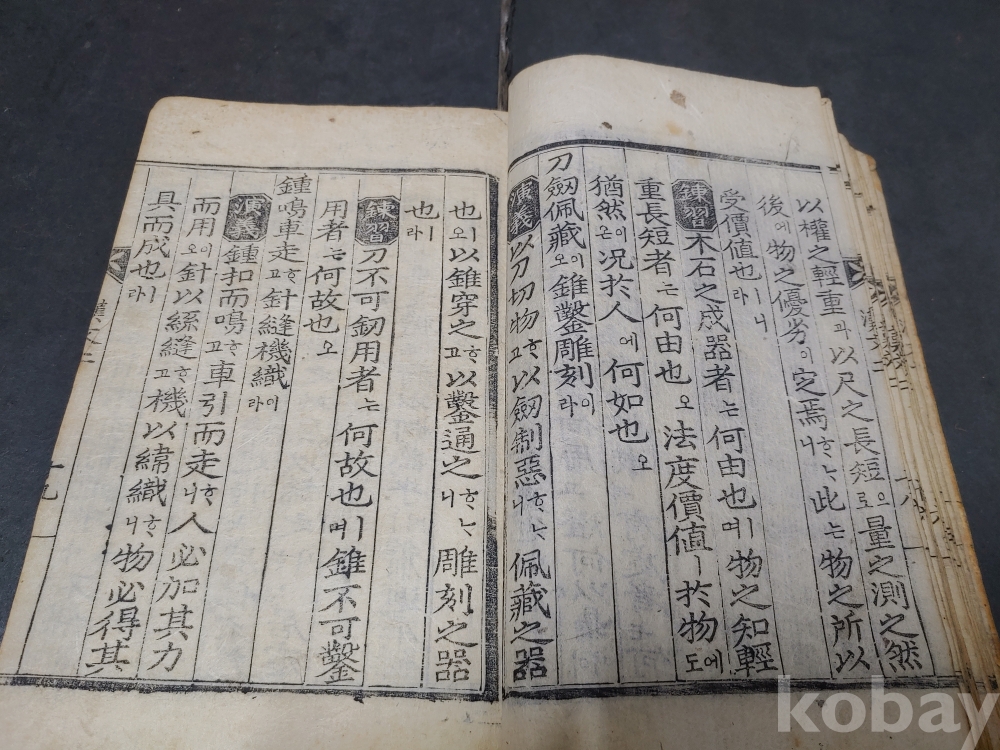 以權之輕重과以尺之長短으로量之測之然
後에物之優劣이定焉ᄒᆞᄂᆞ니此는物之所以
受價値也ㅣ니라
鍊習 木石之成器者는何由也며物之知輕
重長短者는何由也오法度價値ㅣ於物에도
猶然이온況於人에何如也오
刀劒佩藏이오錐鑿雕刻이라
演義 以刀切物ᄒᆞ고以劒制惡ᄒᆞᄂᆞ니佩藏之器
也ㅣ오以錐穿之ᄒᆞ고以鑿通之ᄒᆞᄂᆞ니雕刻之器
也ㅣ라
鍊習 刀不可劒用者는何故也ㅣ며錐不可鑿
用者는何故也오
鍾鳴車走ᄒᆞ고針縫機織이라
演義 鍾扣而鳴ᄒᆞ고車引而走ᄒᆞ니人必加其力
而用이오針以絲縫ᄒᆞ고機以緯織ᄒᆞ니物必得其
具而成也ㅣ라
十九
kobay